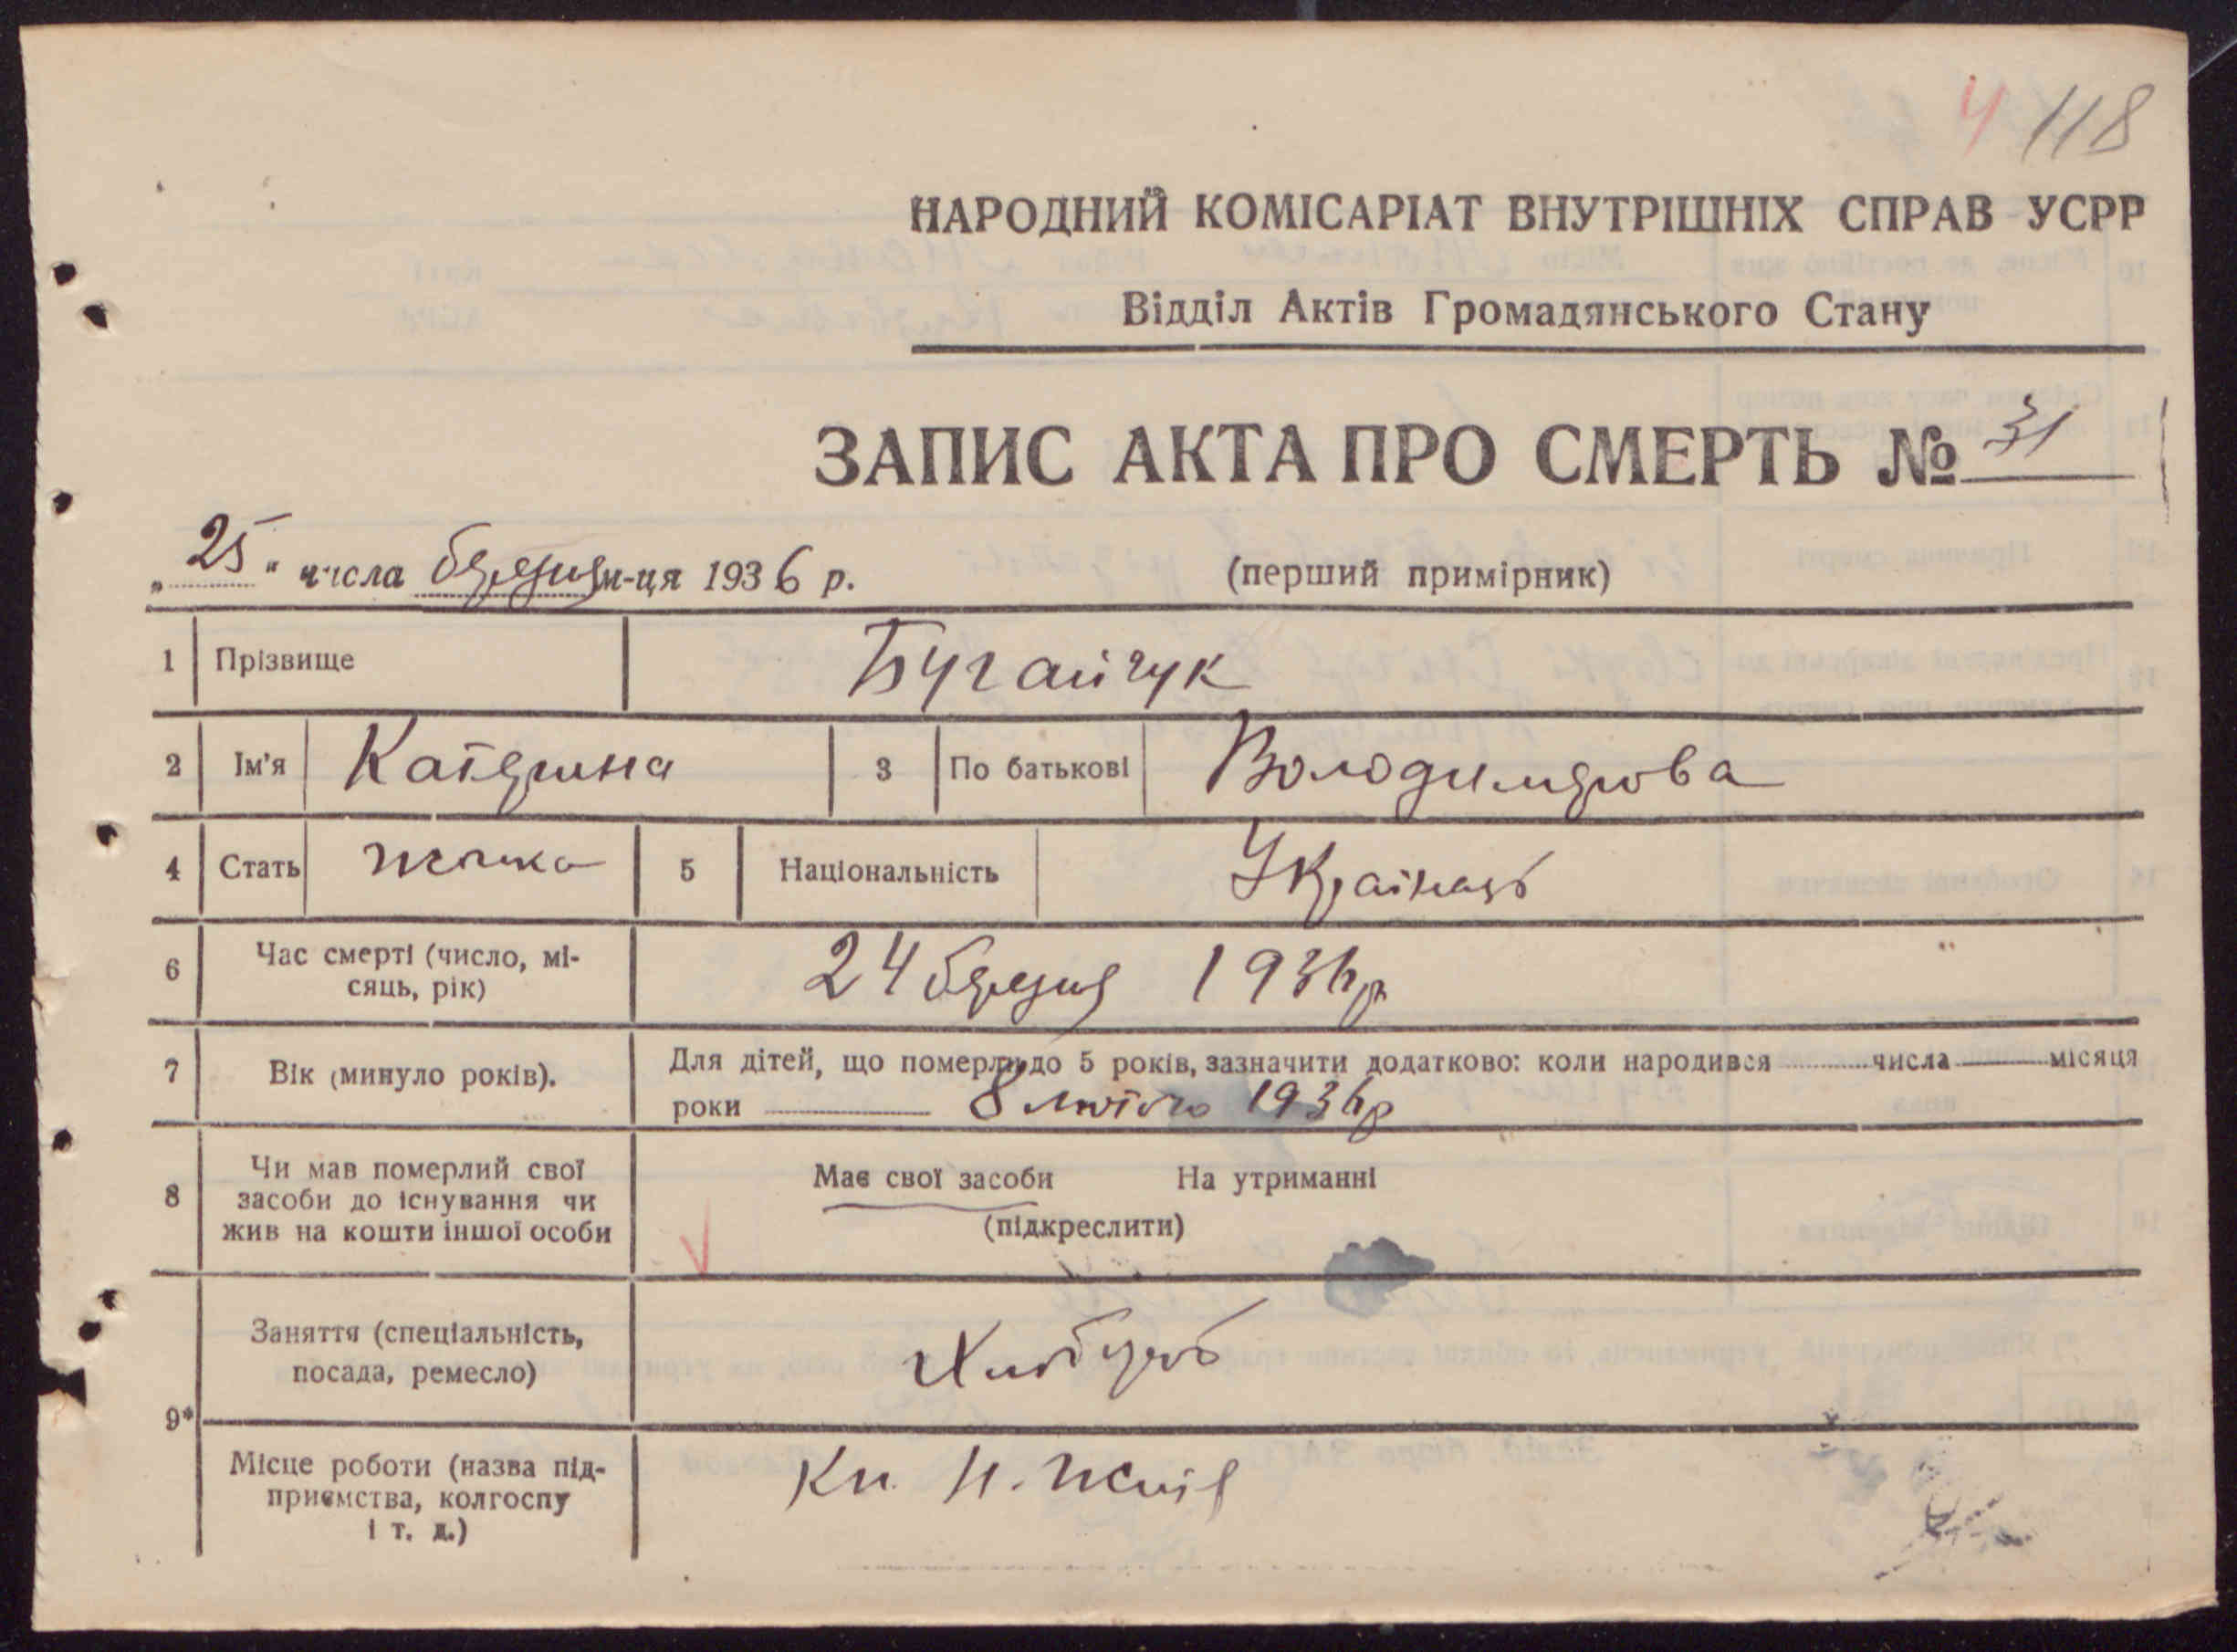 4 118
НАРОДНИЙ КОМІСАРІАТ ВНУТРІШНІХ СПРАВ УСРР
Відділ Актів Громадянського Стану
ЗАПИС АКТА ПРО СМЕРТЬ № 31
„25" числа березня м-ця 1936 р. (перший примірник)
1 Прізвище Бугайчук
2 Ім'я Катерина 3 По батькові Володимирова
4 Стать жінка 5 Національність Українець
6 Час смерті (число, мі-
сяць, рік) 24 березня 1936 р
7 Вік (минуло років). Для дітей, що померли до 5 років, зазначити додатково: коли народився числа місяця
роки 8 лютого 1936 р
8 Чи мав померлий свої
засоби до існування чи
жив на кошти іншої особи
Має свої засоби На утриманні
(підкреслити)
9* Заняття (спеціальність,
посада, ремесло) Хлібуроб
Місце роботи (назва під-
приємства, колгоспу
і т. д.)